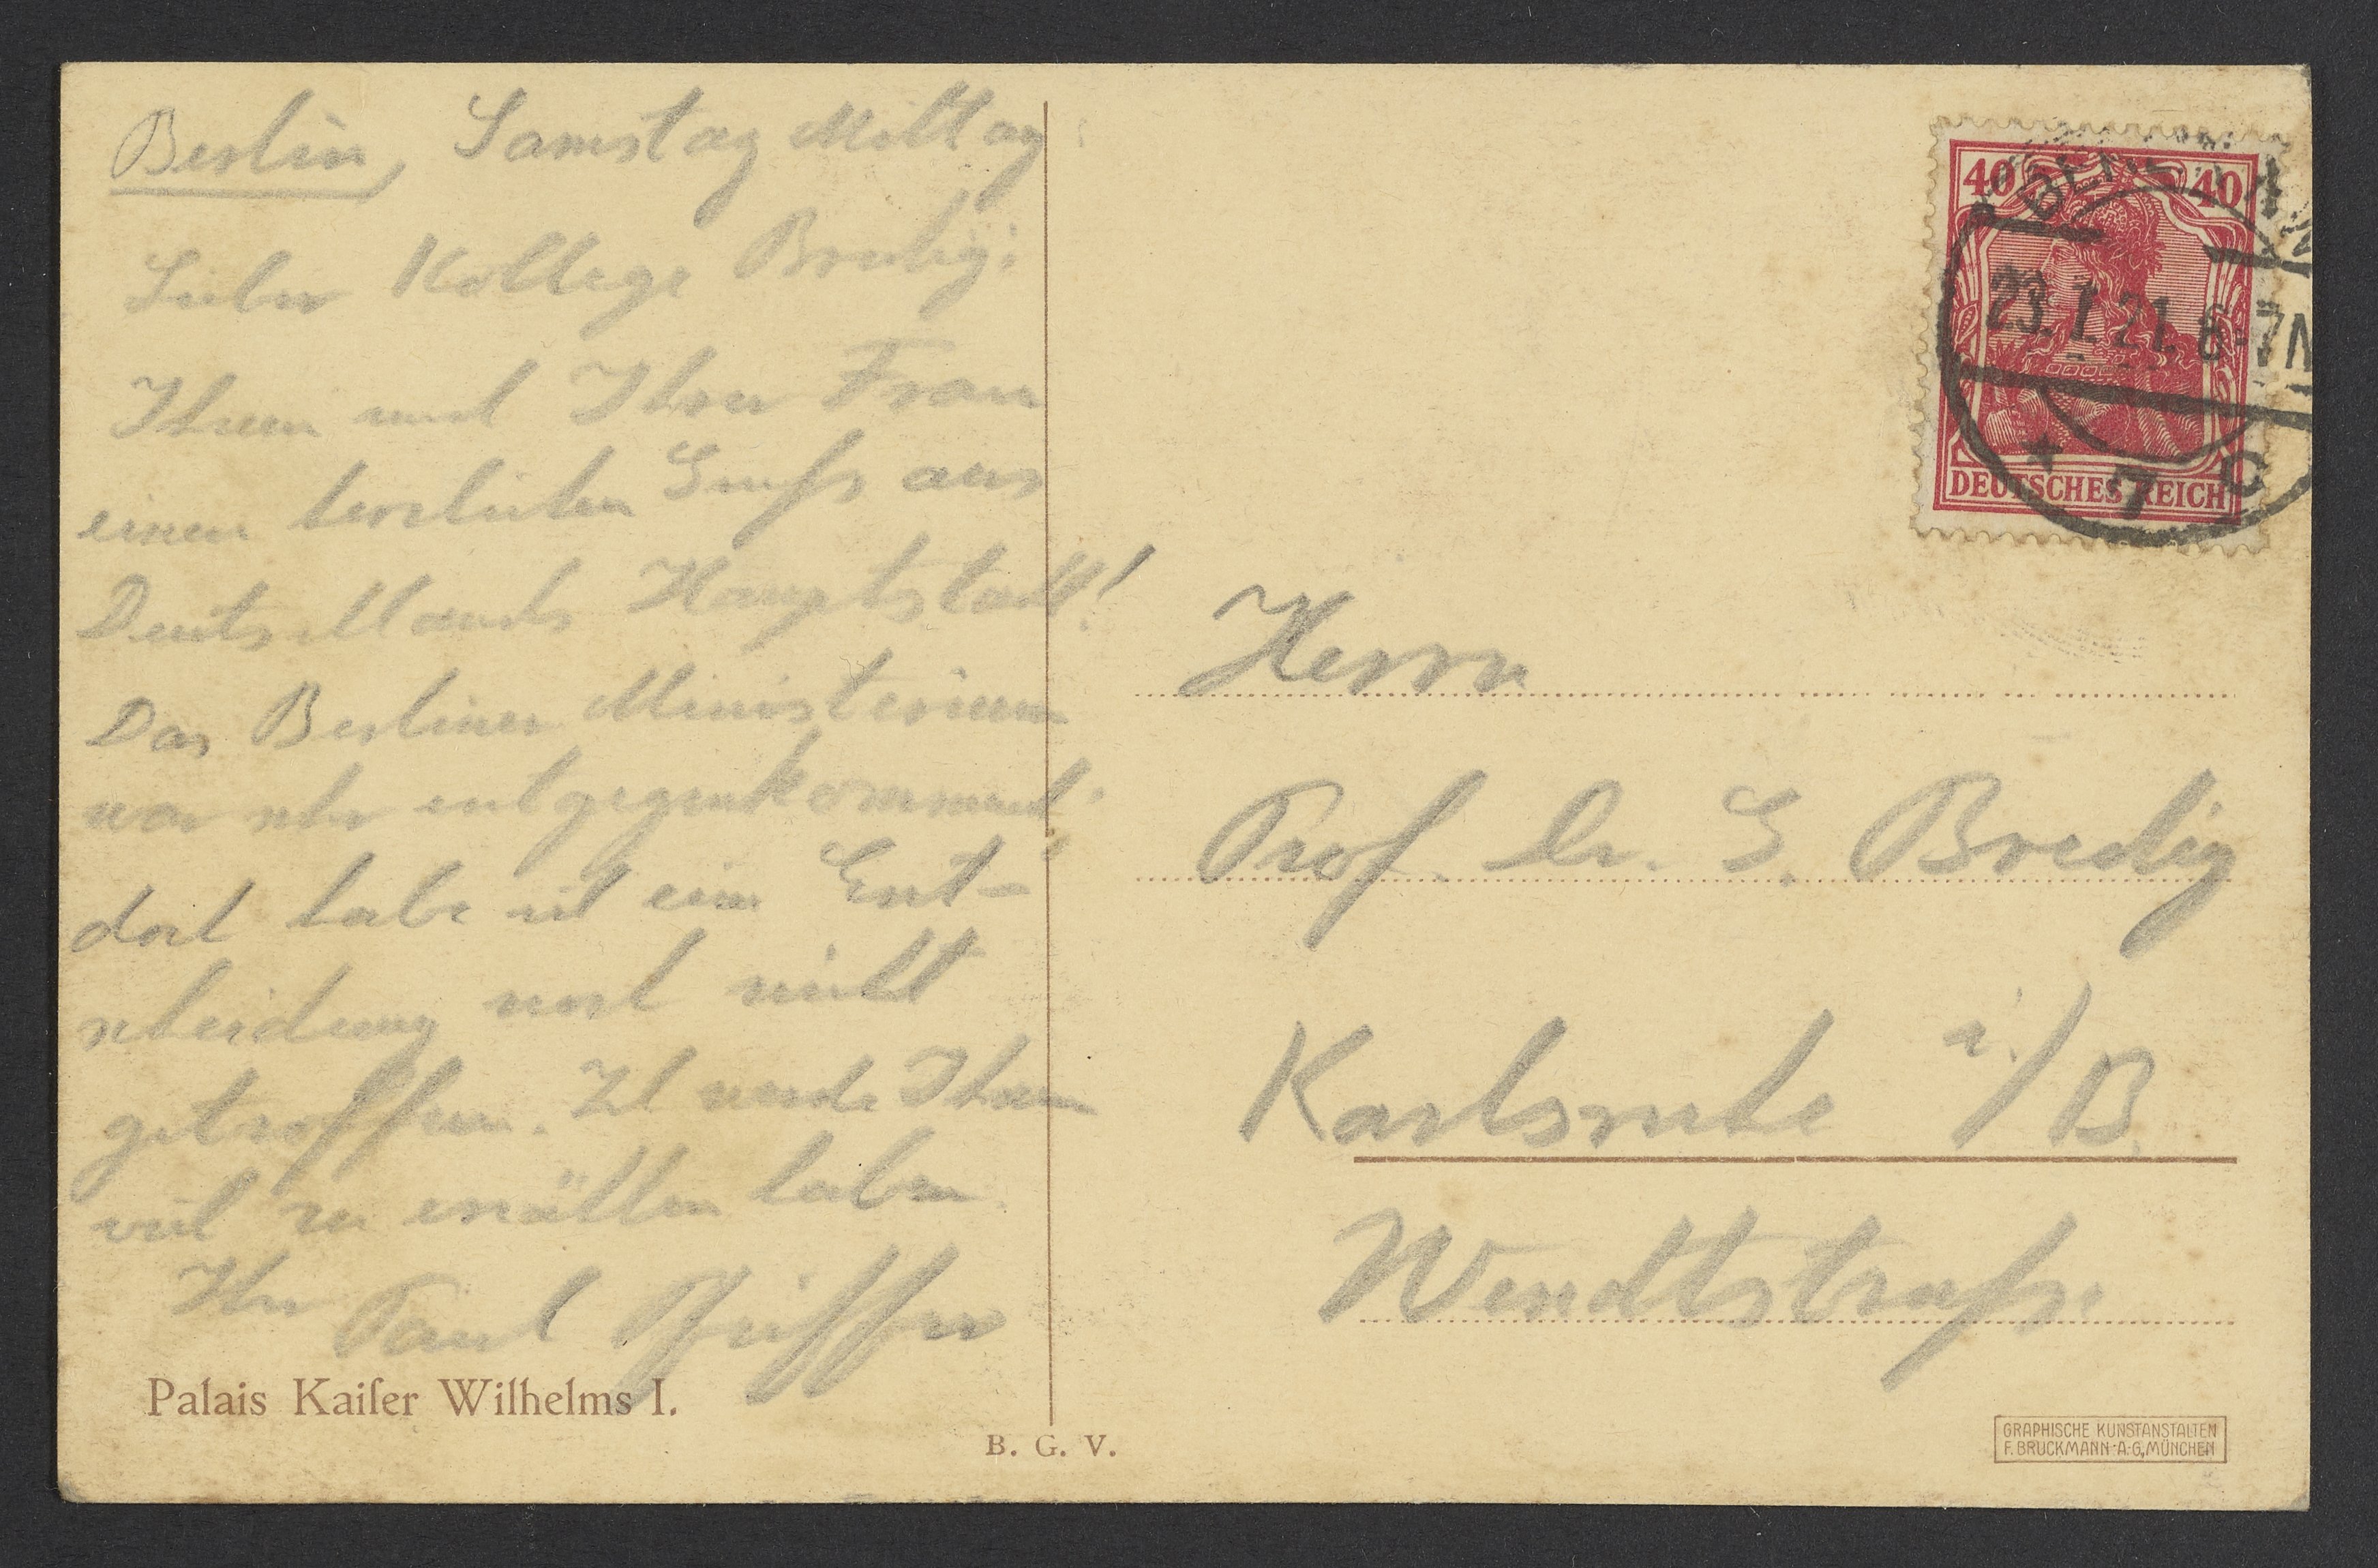 Berlin, Samstag Mittag
Lieber Kollege Bredig!
Ihnen und Ihrer Frau
einen herzlichen Gruß aus
Deutschlands Hauptstadt!
Das Berliner Ministerium
war sehr entgegenkommend.
doch habe ich eine Ent-
scheidung noch nicht
getroffen. Ich werde Ihnen
viel zu erzählen haben
Ihr Paul Pfeiffer
Palais Kaiſer Wilhelms I.
B. G. V.
40 40
DEUTSCHES REICH
BERLIN
23.1.21. 6-7N
* 7 c
Herrn
Prof. Dr. G. Bredig
Karlsruhe i./B.
Wendtstraße
GRAPHISCHE KUNSTANSTALTEN
F. BRUCKMANN A-G, MÜNCHEN